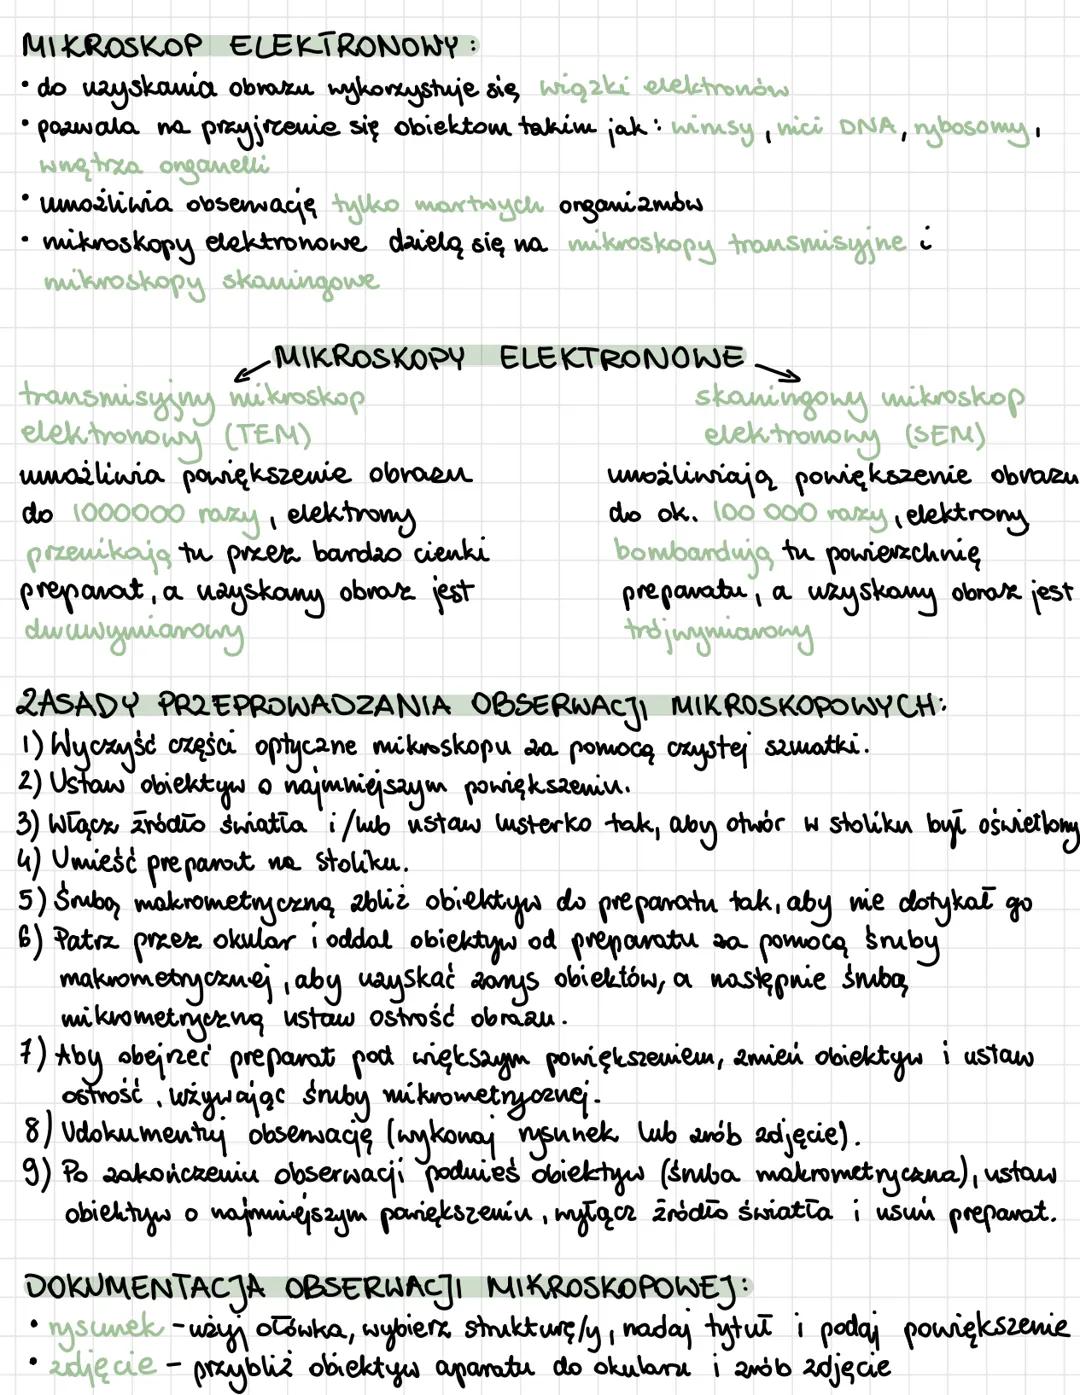 MIKROSKOP ELEKTRONOWY:
• do uzyskania obrazu wykorzystuje się wiązki elektronów
• pozwala na przyjrzenie się obiektom takim jak: wirusy, nici DNA, rybosomy,
wnętrza organelli
• umożliwia obserwację tylko martwych organizmów
• mikroskopy elektronowe dzielą się na mikroskopy transmisyjne i
mikroskopy skaningowe
MIKROSKOPY ELEKTRONOWE
transmisyjny mikroskop
elektronowy (TEM)
umożliwia powiększenie obrazu
do 1000000 razy, elektrony
przenikają tu przez bardzo cienki
preparat, a uzyskany obraz jest
dwuwymiarowy
skaningowy mikroskop
elektronowy (SEM)
umożliwiają powiększenie obrazu
do ok. 100 000 razy, elektrony
bombardują tu powierzchnię
preparatu, a uzyskany obraz jest
trójwymiarowy
ZASADY PRZEPROWADZANIA OBSERWACJI MIKROSKOPOWYCH:
1) Wyczyść części optyczne mikroskopu za pomocą czystej szmatki.
2) Ustaw obiektyw o najmniejszym powiększeniu.
3) Włącz źródło światła i/lub ustaw lusterko tak, aby otwór w stoliku był oświetlony
4) Umieść preparat na stoliku.
5) Śrubą makrometryczną zbliż obiektyw do preparatu tak, aby nie dotykał go
6) Patrz przez okular i oddal obiektyw od preparatu za pomocą śruby
makrometrycznej, aby uzyskać zarys obiektów, a następnie śrubą
mikrometryczną ustaw ostrość obrazu.
7) Aby obejrzeć preparat pod większym powiększeniem, zmień obiektyw i ustaw
ostrość, używając śruby mikrometrycznej.
8) Udokumentuj obserwację (wykonaj rysunek lub zrób zdjęcie).
9) Po zakończeniu obserwacji podnieś obiektyw (śruba makrometryczna), ustaw
obiektyw o najmniejszym powiększeniu, wyłącz źródło światła i usuń preparat.
DOKUMENTACJA OBSERWACJI MIKROSKOPOWEJ:
• rysunek - użyj ołówka, wybierz strukturę/y, nadaj tytuł i podaj powiększenie
• zdjęcie - przybliż obiektyw aparatu do okularu i zrób zdjęcie